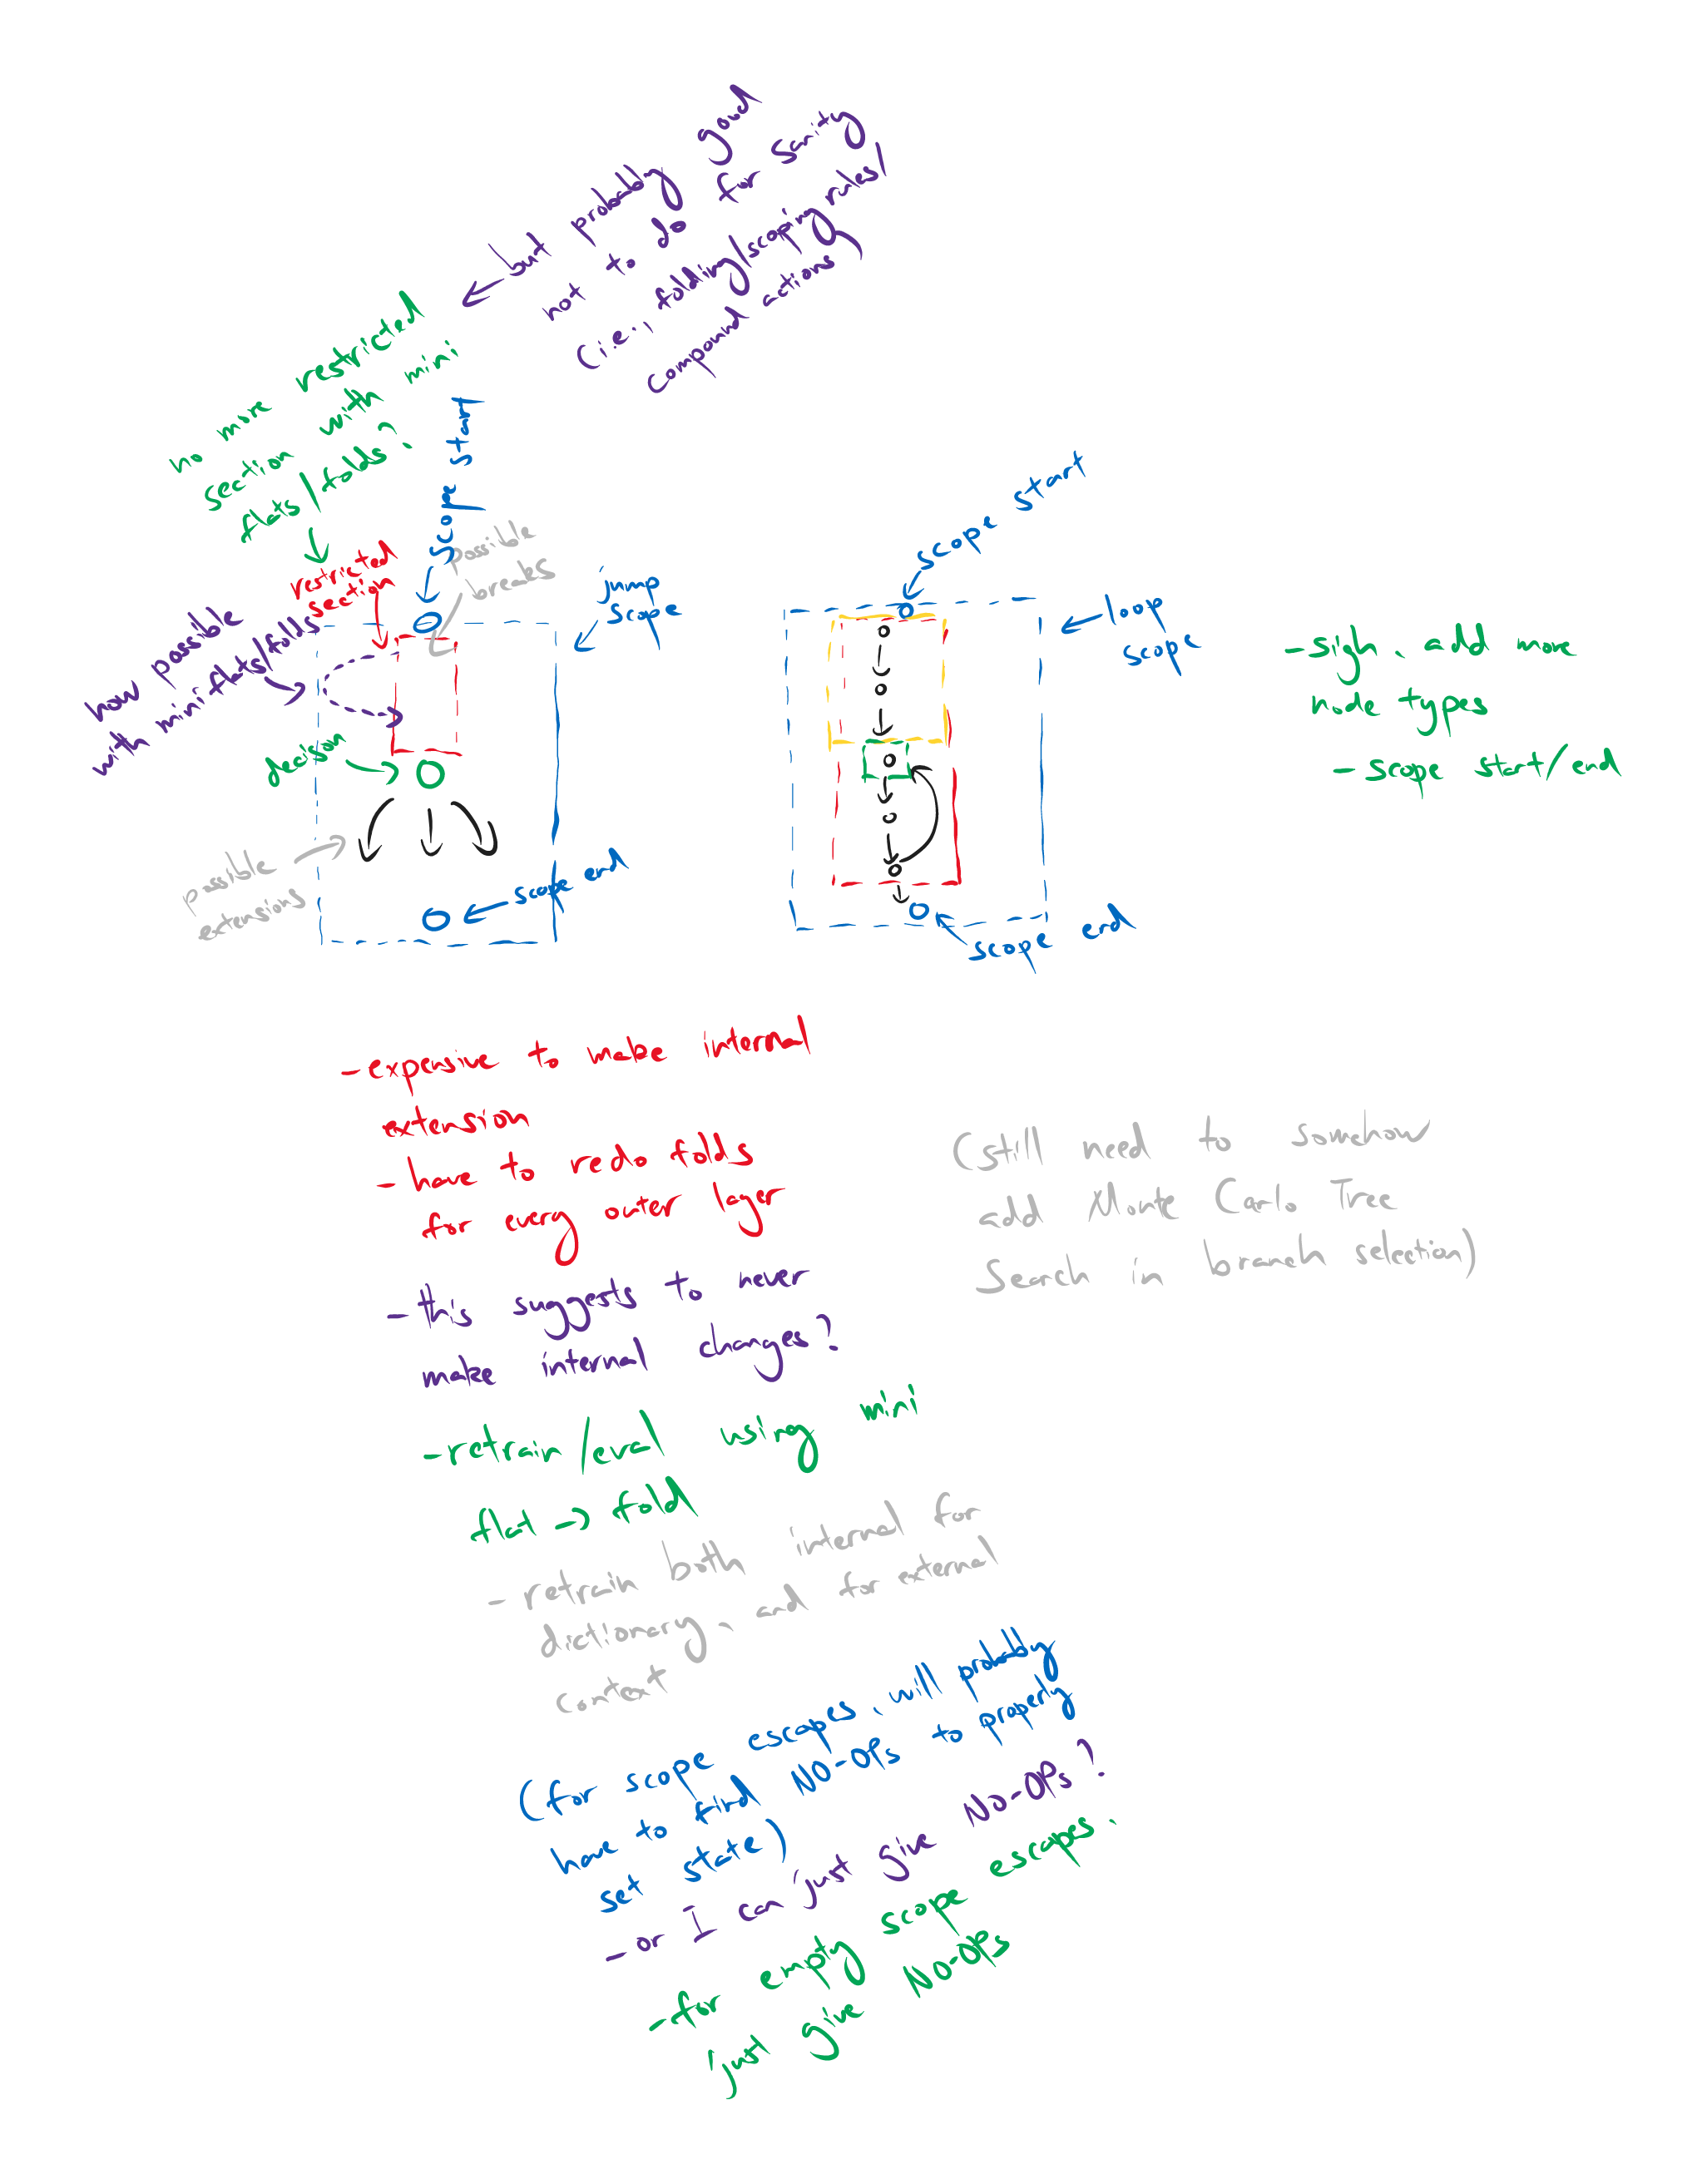 but probably good
not to do for sanity
(i.e., folding/scoping rules/
compound actions)
no more restricted
section with mini
flats/folds?
scope start
possible
breaks
restricted
section
jump
scope
how possible
with mini flats/folds
decison
possible
extensions
scope end
scope start
loop
scope
scope end
-sigh, add more
node types
-scope start/end
-expensive to make internal
extension
-have to redo folds
for every outer layer
-this suggests to never
make internal changes?
-retrain/eval using mini
flat -> fold
-retrain both internal for
dictionary, and for external
context
(still need to somehow
add Monte Carlo Tree
Search in branch selection)
(for scope escapes, will probably
have to find NO-OPs to properly
set state)
-or I can just give NO-OPs?
-for empty scope escapes,
just give NO-OPs